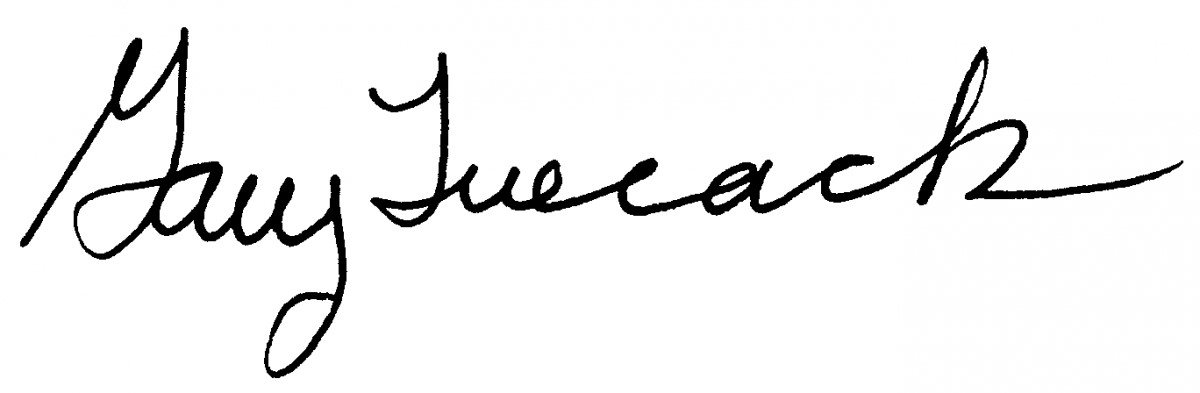 Gary Tuerack